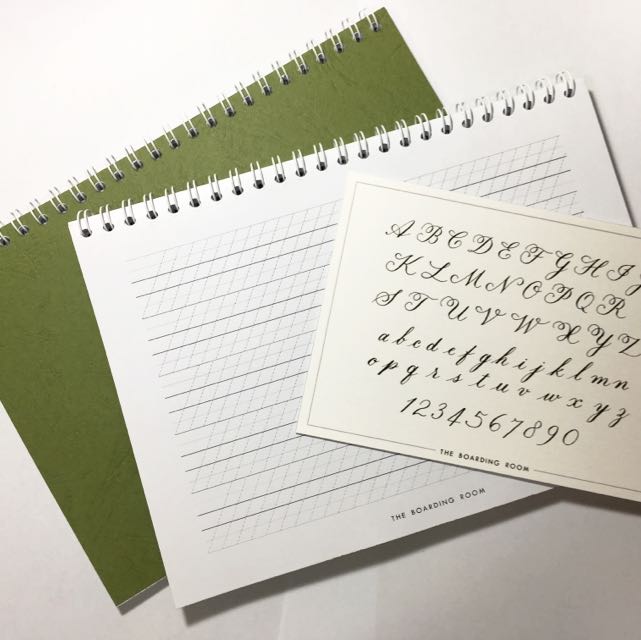 A B C D E F G H I J
K L M N O P Q R
S T U V W X Y Z
a b c d e f g h i j k l m n
o p q r s t u v w x y z
1 2 3 4 5 6 7 8 9 0
THE BOARDING ROOM
THE BOARDING ROOM